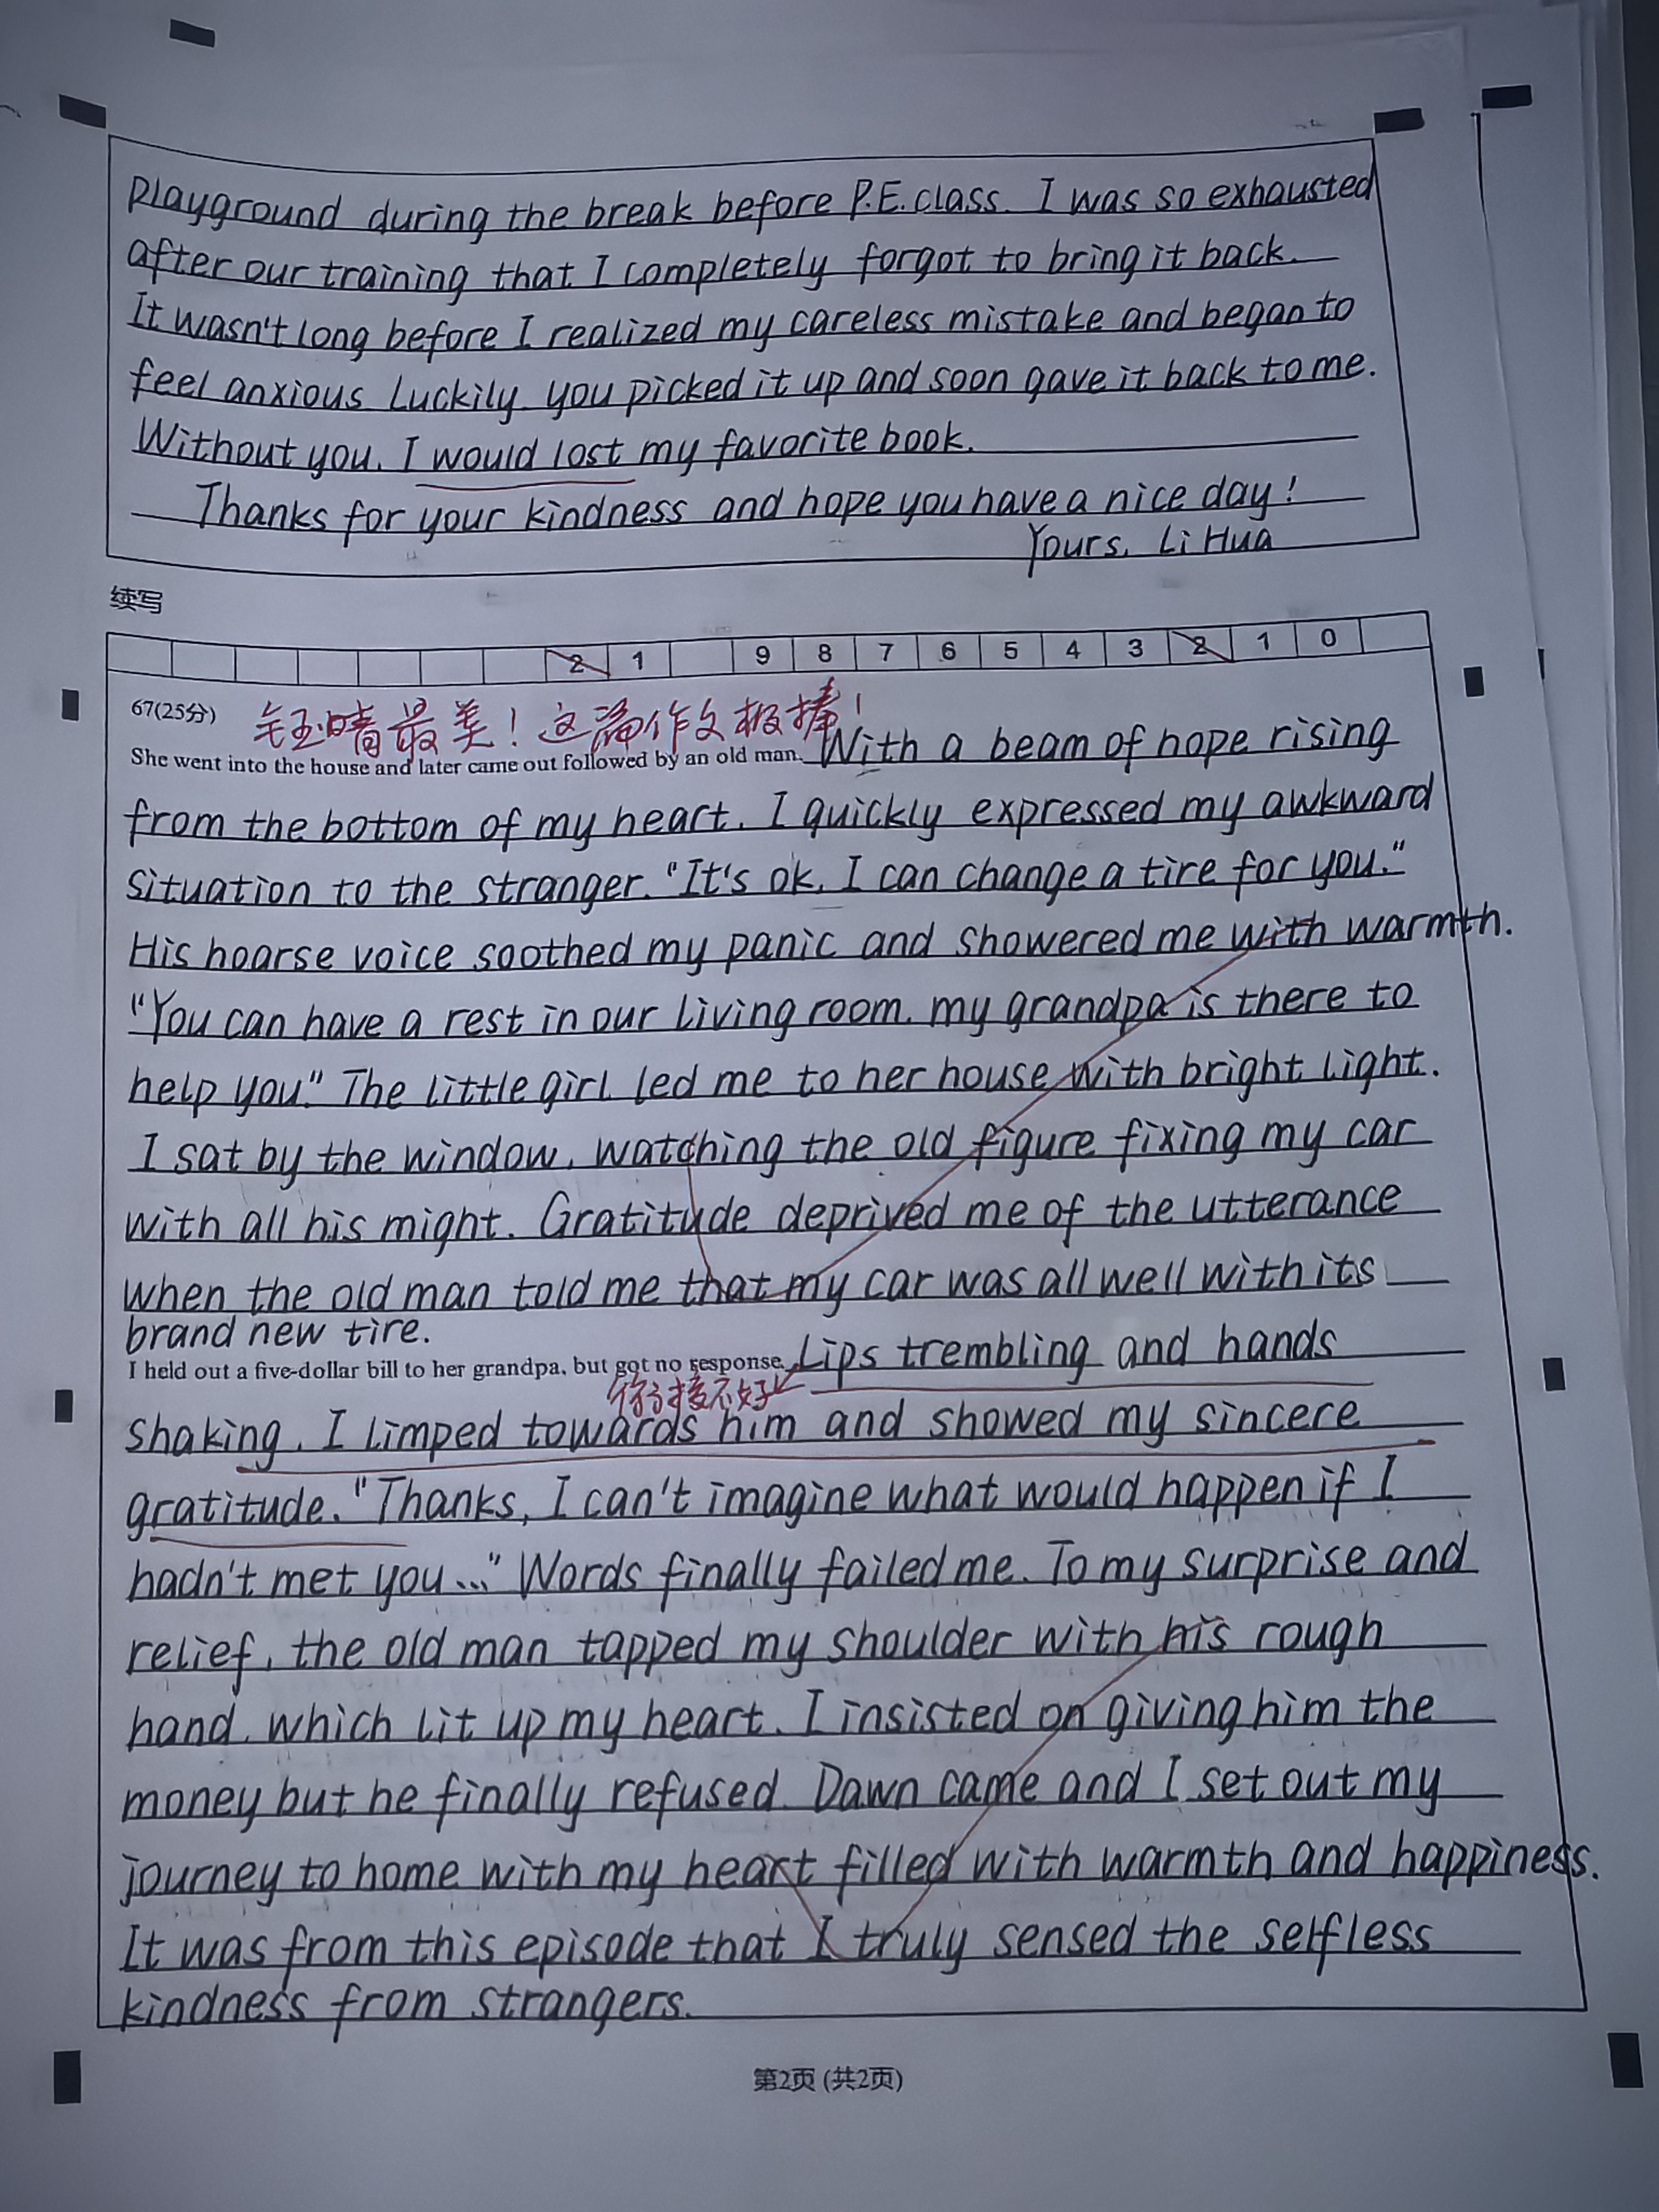 playground during the break before P.E. class. I was so exhausted
after our training that I completely forgot to bring it back.
It wasn't long before I realized my careless mistake and began to
feel anxious. Luckily, you picked it up and soon gave it back to me.
Without you, I would lost my favorite book.
Thanks for your kindness and hope you have a nice day!
Yours, Li Hua
续写
2 1 9 8 7 6 5 4 3 2 1 0
67(25分)
钰晴最美！这篇作文极棒！
She went into the house and later came out followed by an old man. With a beam of hope rising
from the bottom of my heart, I quickly expressed my awkward
situation to the stranger. "It's ok, I can change a tire for you."
His hoarse voice soothed my panic and showered me with warmth.
"You can have a rest in our living room, my grandpa is there to
help you." The little girl led me to her house with bright light.
I sat by the window, watching the old figure fixing my car
with all his might. Gratitude deprived me of the utterance
when the old man told me that my car was all well with its
brand new tire.
I held out a five-dollar bill to her grandpa, but got no response. Lips trembling and hands
接不好
shaking, I limped towards him and showed my sincere
gratitude. "Thanks, I can't imagine what would happen if I
hadn't met you..." Words finally failed me. To my surprise and
relief, the old man tapped my shoulder with his rough
hand, which lit up my heart. I insisted on giving him the
money but he finally refused. Dawn came and I set out my
journey to home with my heart filled with warmth and happiness.
It was from this episode that I truly sensed the selfless
kindness from strangers.
第2页 (共2页)